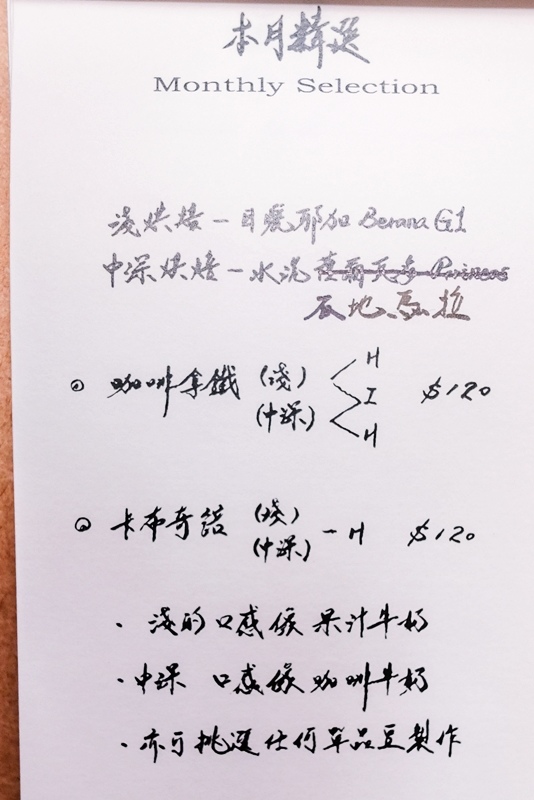 本月精選
Monthly Selection
淺烘焙 - 日曬耶加 Berana G1
中深烘焙 - 水洗
瓜地馬拉
咖啡拿鐵 (淺) H I $120
(中深) H
卡布奇諾 (淺) - H $120
(中深)
· 淺的口感候果汁牛奶
· 中深 口感候咖啡牛奶
· 亦可挑選任何單品豆製作